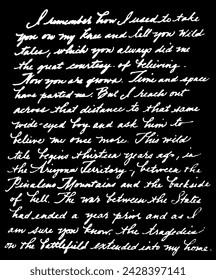 I remember how I used to take
you on my knee and tell you wild
tales, which you always did me
the great courtesy of believing.
Now you are grown. Time and space
have parted us. But I reach out
across that distance to that same
wide-eyed boy and ask him to
believe me once more. This wild
tale begins thirteen years ago, in
the Arizona Territory, between the
Pinaleno Mountains and the backside
of hell. The war between the States
had ended a year prior and as I
am sure you know, the tragedies
on the battlefield extended into my home.
shutterstock.com · 2428397141